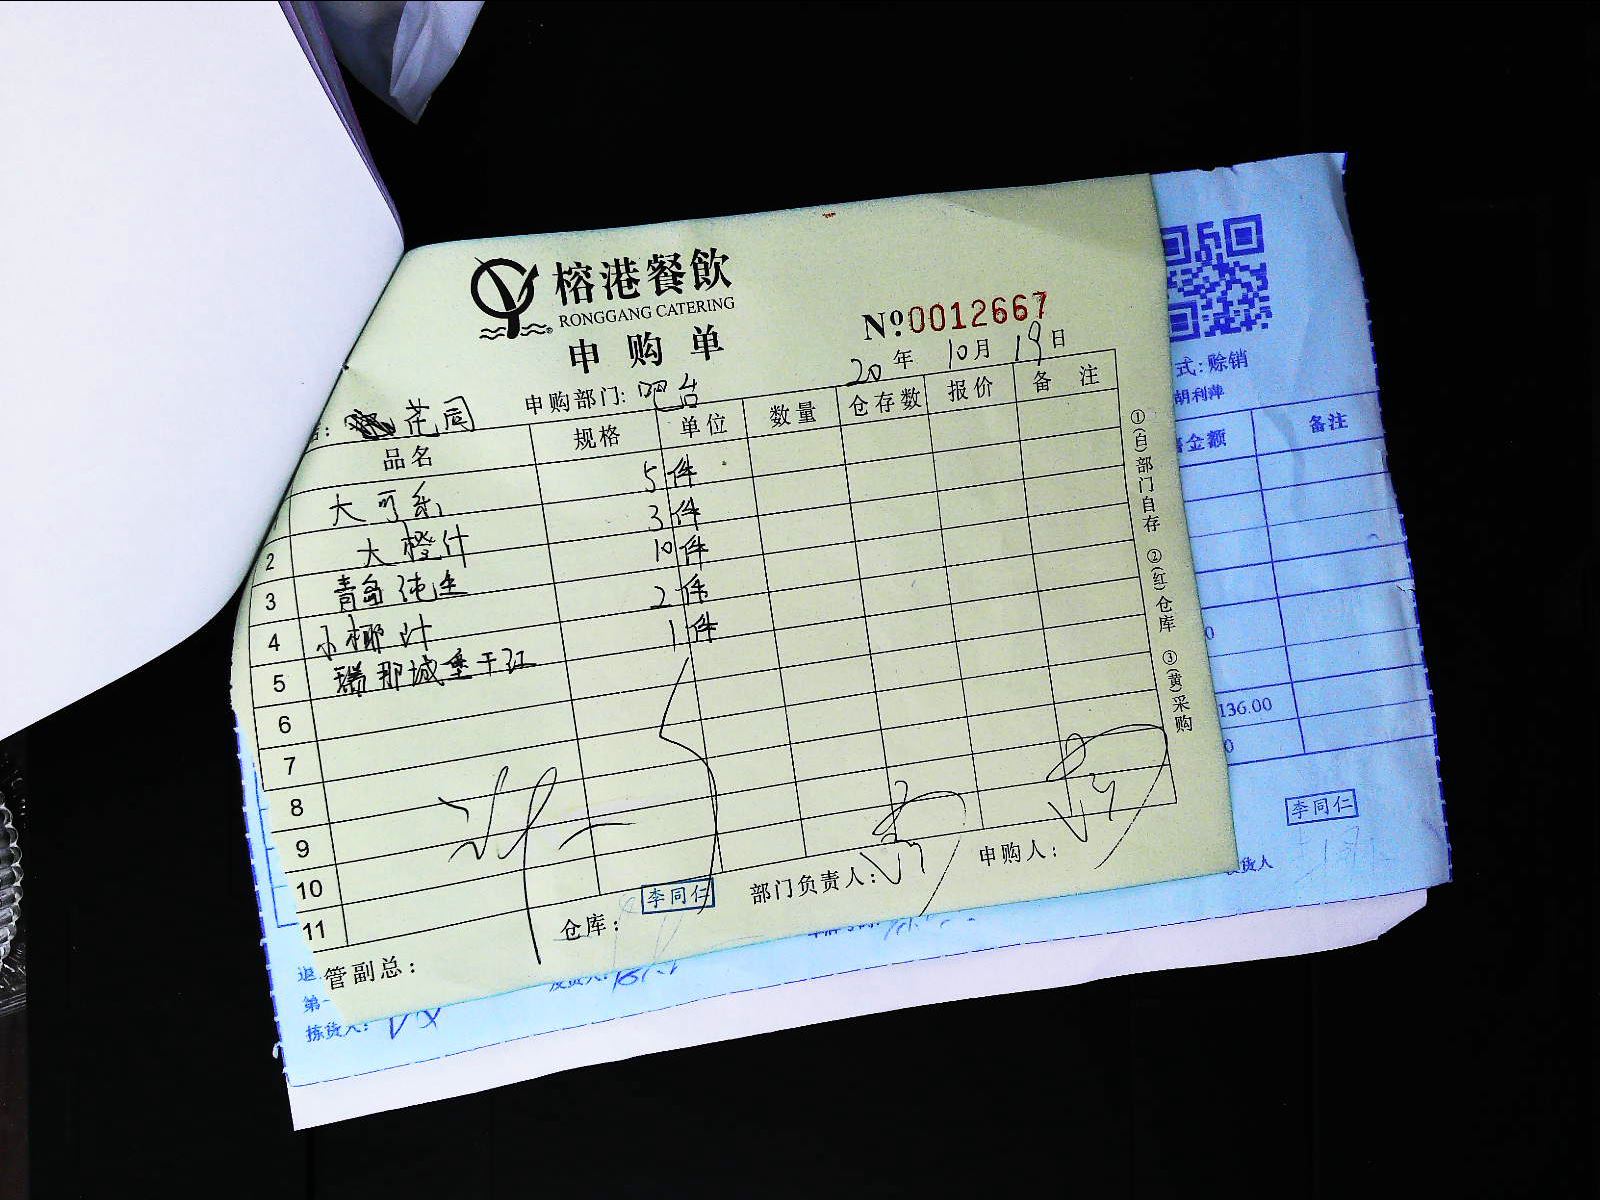 榕港餐飲
RONGGANG CATERING
申购单
№0012667
20年 10月 19日
申购部门: 吧台
品名 规格 单位 数量 仓存数 报价 备注
大可乐 5件
2 大橙汁 3件
3 青岛纯生 10件
4 小椰汁 2件
5 瑞那城堡干红 1件
6
7
8
9
10
11
①(白)部门自存 ②(红)仓库 ③(黄)采购
管副总:
仓库: 李同仁
部门负责人:
申购人:
式: 赊销
胡利萍
金额 备注
0
136.00
0
李同仁
货人
退
第一
拣货人: